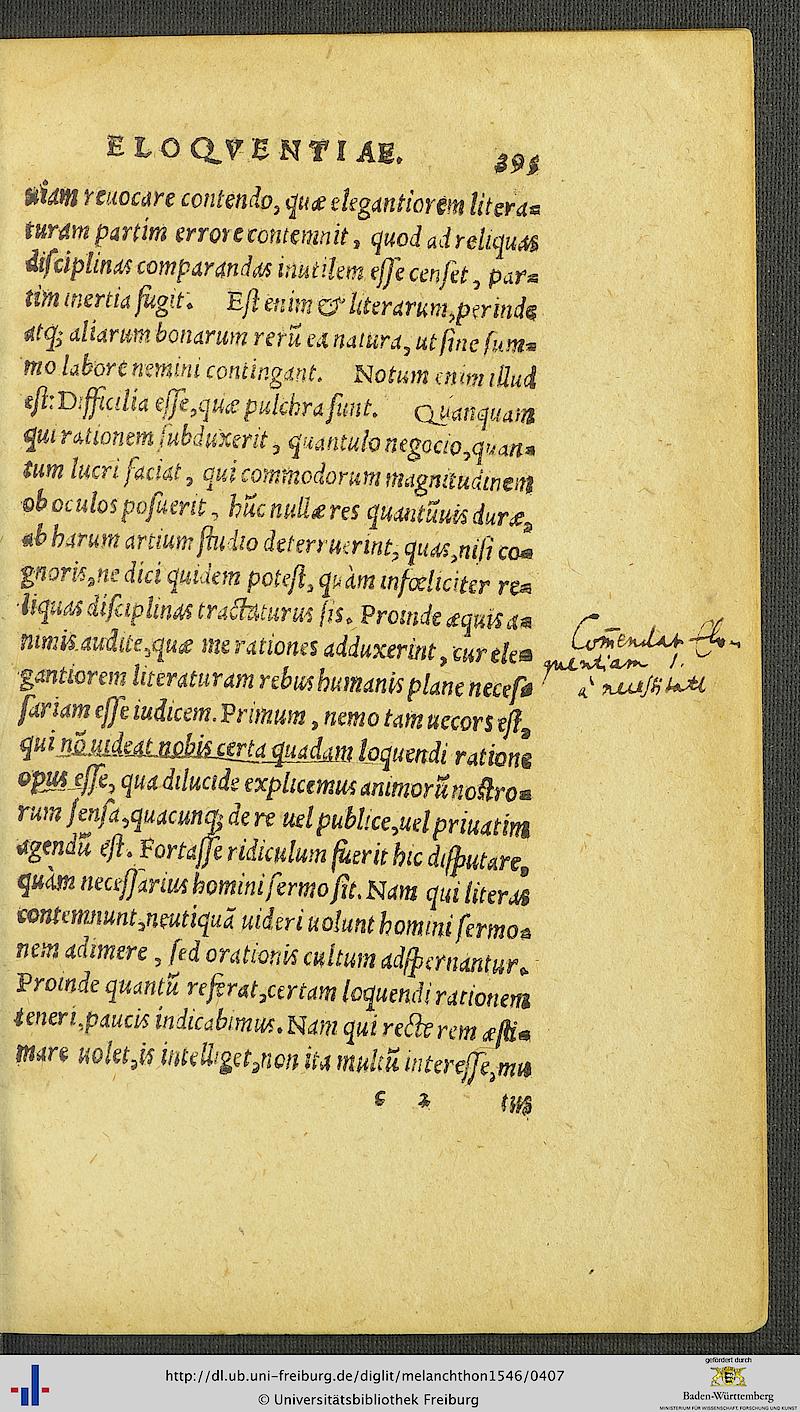 ELOQVENTIAE. 395
uiam reuocare contendo, quæ elegantiorem litera-
turam partim errore contemnit, quod ad reliquas
disciplinas comparandas inutilem esse censet, par-
tim inertia fugit. Est enim & literarum, perinde
atq; aliarum bonarum rerū ea natura, ut sine sum-
mo labore nemini contingant. Notum enim illud
est: Difficilia esse, quæ pulchra sunt. Quanquam
qui rationem subduxerit, quantulo negocio, quan-
tum lucri faciat, qui commodorum magnitudinem
ob oculos posuerit, hūc nullæ res quantūuis duræ,
ab harum artium studio deterruerint, quas, nisi co-
gnoris, ne dici quidem potest, quàm infœliciter re-
liquas disciplinas tractaturus sis. Proinde æquis a-
nimis audite, quæ me rationes adduxerint, cur ele-
gantiorem literaturam rebus humanis plane neces-
sariam esse iudicem. Primum, nemo tam uecors est,
qui nō uideat nobis certa quadam loquendi ratione
opus esse, qua dilucide explicemus animorū nostro-
rum sensa, quacunq; de re uel publice, uel priuatim
agendū est. Fortasse ridiculum fuerit hic disputare,
quàm necessarius homini sermo sit. Nam qui literas
contemnunt, neutiquā uideri uolunt homini sermo-
nem adimere, sed orationis cultum adspernantur.
Proinde quantū referat, certam loquendi rationem
teneri, paucis indicabimus. Nam qui recte rem æsti-
mare uolet, is intelliget, non ita multū interesse, mu
c 2 tus
Com̄endat Elo-
quentiam 1.
à necessitate
http://dl.ub.uni-freiburg.de/diglit/melanchthon1546/0407
© Universitätsbibliothek Freiburg
gefördert durch
Baden-Württemberg
MINISTERIUM FÜR WISSENSCHAFT, FORSCHUNG UND KUNST